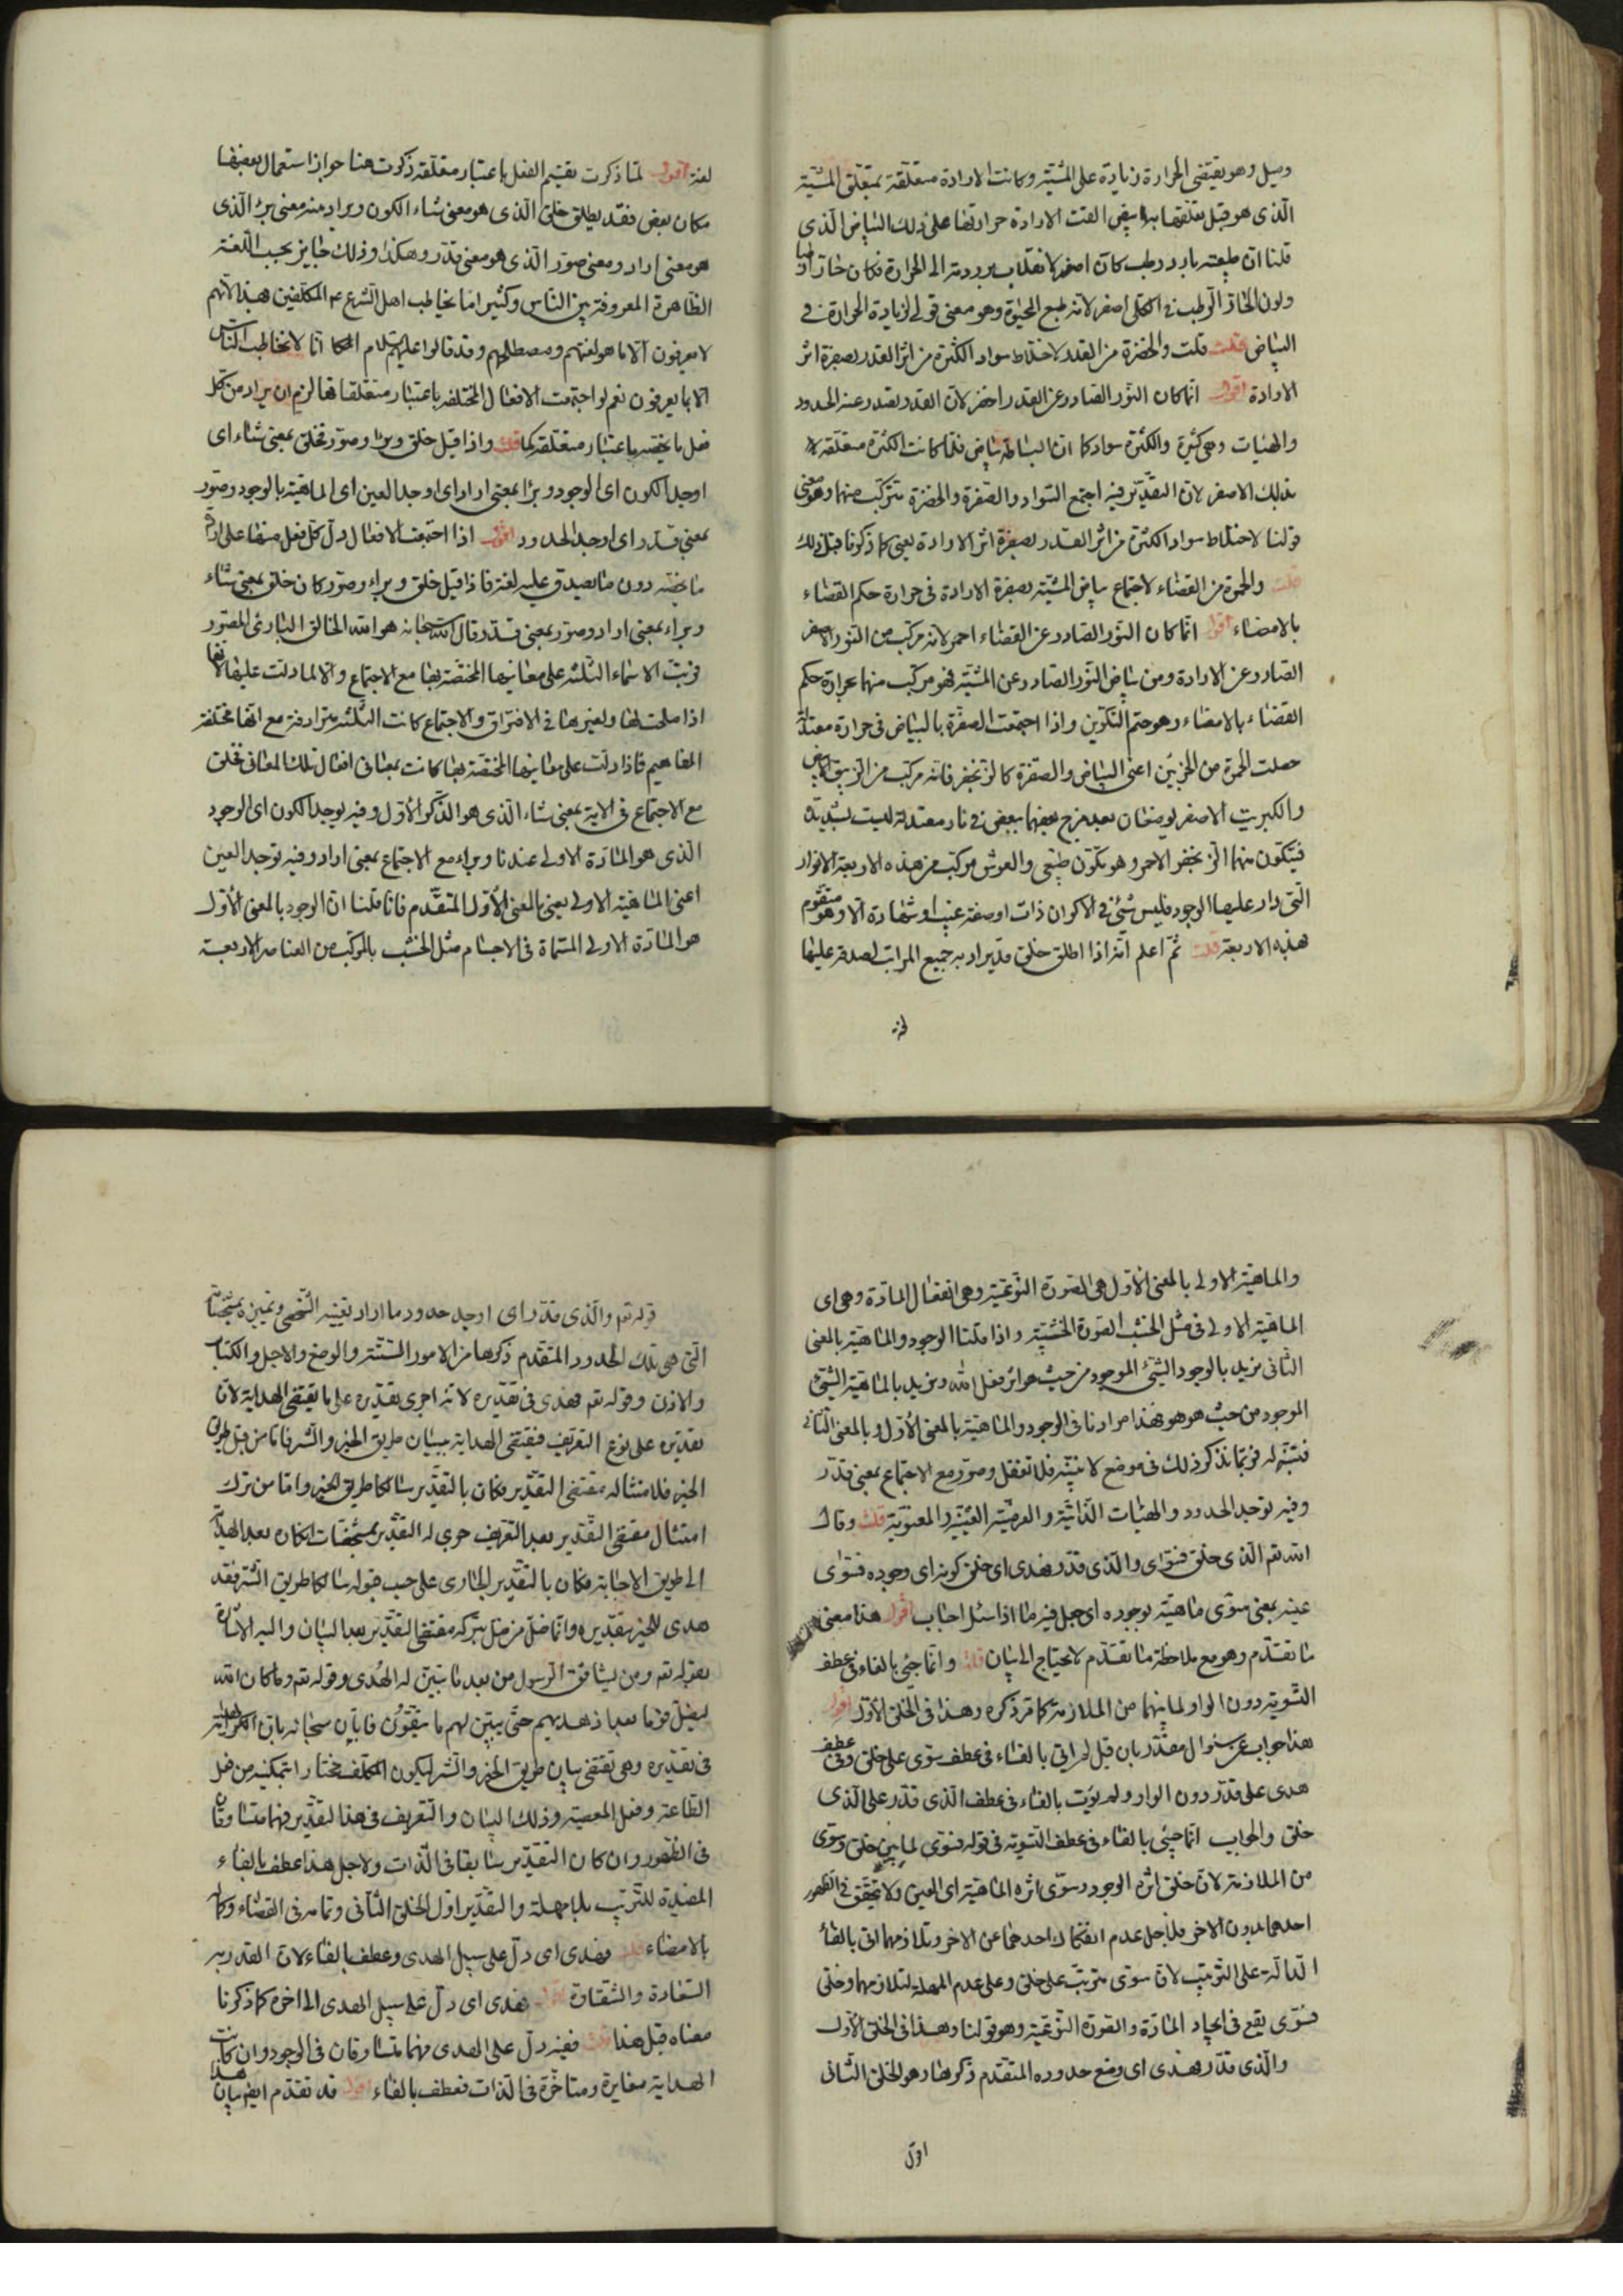 وميل وهو يقتضى الحرارة زيادة على المشيّة وكانت الارادة متعلّقة بمتعلّق المشيّة
الّذى هو قبل تعلّقها به ابيض القت الارادة حرارتها على ذلك البياض الّذى
قلنا انّ طبيعته بارد رطب كان اصفر لانقلاب برودته الى الحرارة فكان حارّا رطبا
ولون الحارّ الرّطب فى اكلى اصفر لانّه طبع الحيٰوة وهو معنى قولى لزيادة الحرارة فى
البياض قلت والخضرة من القدر لاختلاط سواد الكثرة من اثر القدر بصفرة اثر
الارادة اقول انّما كان النّور الصّادر عن القدر اخضر لانّ القدر تصدر عنه الحدود
والهيئات وهى كثيرة والكثرة سواد كما انّ البساطة بياض فلمّا كانت الكثرة متعلّقة
بذلك الاصفر لانّ التّقدير فيه اجتمع السّواد والصّفرة والخضرة تتركّب منهما وهو معنى
قولنا لاختلاط سواد الكثرة من اثر القدر بصفرة اثر الارادة يعنى كما ذكرنا قبل ذلك
قلت والحمرة من القضاء لاجتماع بياض المشيّة بصفرة الارادة فى حرارة حكم القضاء
بالامضاء اقول انّما كان النّور الصّادر عن القضاء احمر لانّه مركّب من النّور الاصفر
الصّادر عن الارادة ومن بياض النّور الصّادر عن المشيّة فهو مركّب منهما بحرارة حكم
القضاء بالامضاء وهو حتم التّكوين واذا اجتمعت الصّفرة بالبياض فى حرارة معتدلة
حصلت الحمرة من الجزئين اعنى البياض والصّفرة كالزّنجفر فانّه مركّب من الزّيبق الابيض
والكبريت الاصفر يوضعان بعد مزج بعضهما ببعض فى نار معتدلة ليست بشديدة
فيتكوّن منهما الزّنجفر الاحمر وهو تكوّن طبيعى والعرش مركّب من هذه الاربعة الانوار
الّتى دار عليها الوجود فليس شئ فى الاكوان ذات او صفة غيب او شهادة الّا وهو متقوّم
هذه الاربعة قلت ثمّ اعلم انّه اذا اطلق خلق قد يراد به جميع المراتب لصدقه عليها
لغة
لغة اقول لمّا ذكرت تقسيم الفعل باعتبار متعلّقه ذكرت هنا جواز استعمال بعضها
مكان بعض فقد يطلق خلق الّذى هو معنى شاء الكون ويراد منه معنى برأ الّذى
هو معنى اراد ومعنى صوّر الّذى هو معنى قدّر وهكذا وذلك جايز بحسب اللّغة
الظّاهرة المعروفة بين النّاس وكثيرا ما يخاطب اهل الشّرع ع المكلّفين بهذا لانّهم
لا يعرفون الّا ما هو لغتهم ومصطلحهم وقد قالوا عليهم السّلام انّا لا نخاطب النّاس
الّا بما يعرفون نعم لو اجتمعت الافعال المختلفة باعتبار متعلّقاتها لزم ان يراد من كلّ
فعل ما يخصّه باعتبار متعلّقه كما قلت واذا قيل خلق وبرأ وصوّر فخلق بمعنى شاء اى
اوجد الكون اى الوجود وبرأ بمعنى اراد اى اوجد العين اى الماهيّة بالوجود وصوّر
بمعنى قدّر اى اوجد الحدود اقول اذا اجتمعت الافعال دلّ كلّ فعل منها على ارادة
ما يخصّه دون ما يصدق عليه لغة فاذا قيل خلق وبراء وصوّر كان خلق بمعنى شاء
وبراء بمعنى اراد وصوّر بمعنى قدّر قال الله سبحانه هو الله الخالق البارئ المصوّر
فرتبت الاسماء الثّلثة على معانيها المختصّة بها مع الاجتماع والّا لما دلّت عليها لانّها
اذا صلحت لها ولغيرها فى الافتراق والاجتماع كانت الثّلثة مترادفة مع انّها مختلفة
المفاهيم فاذا دلّت على معانيها المختصّة بها كانت بمعانى افعال تلك المعانى فخلق
مع الاجتماع فى الاية بمعنى شاء الّذى هو الذّكر الاوّل وفيه يوجد الكون اى الوجود
الّذى هو المادّة الاولى عندنا وبراء مع الاجتماع بمعنى اراد وفيه توجد العين
اعنى الماهيّة الاولى يعنى بالمعنى الاوّل المتقدّم فانّا قلنا انّ الوجود بالمعنى الاوّل
هو المادّة الاولى المسمّاة فى الاجسام مثل الخشب بالمركّب من العناصر الاربعة
والماهيّة الاولى بالمعنى الاوّل هى الصّورة النّوعيّة وهى انفعال المادّة وهى اى
الماهيّة الاولى فى مثل الخشب الصّورة الخشبيّة واذا قلنا الوجود والماهيّة بالمعنى
الثّانى نريد بالوجود الشّئ الموجود من حيث هو اثر فعل الله ونريد بالماهيّة الشّئ
الموجود من حيث هو هو فهذا مرادنا فى الوجود والماهيّة بالمعنى الاوّل وبالمعنى الثّانى
فتنبّه له فربّما نذكر ذلك فى موضع لا نبيّنه فلا تغفل وصوّر مع الاجتماع بمعنى قدّر
وفيه توجد الحدود والهيئات الذّاتيّة والعرضيّة الغيبيّة والمعنويّة قلت وقال
الله تع الّذى خلق فسوّى والّذى قدّر فهدى اى خلق كونه اى وجوده فسوّى
عينه بمعنى سوّى ماهيّته بوجوده اى جعل فيه ما اذا سئل اجاب اقول هذا معنى
ما تقدّم وهو مع ملاحظة ما تقدّم لا يحتاج الى بيان قلت وانّما جئ بالفاء فى عطف
التّسوية دون الواو لما بينهما من الملازمة كما مرّ ذكره وهذا فى الخلق الاوّل اقول
هذا جواب عن سئوال مقدّر بان قيل لم اتى بالفاء فى عطف سوّى على خلق وفى عطف
هدى على قدّر دون الواو ولم يؤت بالفاء فى عطف الّذى قدّر على الّذى
خلق والجواب انّما جئ بالفاء فى عطف التّسوية فى قوله فسوّى لما بين خلق وسوّى
من الملازمة لانّ خلق اثره الوجود وسوّى اثره الماهيّة اى العين ولا يتحقّق فى الظّهور
احدهما بدون الاخر فلاجل عدم انفكاك احدهما عن الاخر وتلازمهما اتى بالفاء
الدّالّة على التّرتيب لانّ سوّى مترتّب على خلق وعلى عدم المهلة لتلازمهما وخلق
فسوّى يقع فى ايجاد المادّة والصّورة النّوعيّة وهو قولنا وهذا فى الخلق الاوّل
والّذى قدّر فهدى اى وضع حدوده المتقدّم ذكرها وهو الخلق الثّانى
اقول
قوله تع والّذى قدّر اى اوجد حدود ما اراد تعيينه الشّخصى وتمييزه بمشخّصاته
الّتى هى تلك الحدود المتقدّم ذكرها من الامور السّتّة والوضع والاجل والكتاب
والاذن وقوله تع فهدى فى تقديره لانّه اجرى تقديره على ما يقتضى الهداية لانّ
تقديره على نوع التّعريف فيقتضى الهداية ببيان طريق الخير والشّر فامّا من قبل طريق
الخير فلامتثاله مقتضى التّقدير فكان بالتّقدير سالكا طريق الخير وامّا من ترك
امتثال مقتضى التّقدير بعد التّعريف جرى له التّقدير بمشخّصات انكاره بعد الهداية
الى طريق الاجابة فكان بالتّقدير الجارى على حسب قبوله سالكا طريق الشّر فقد
هدى للخير بتقديره وانّما ضلّ من ضلّ بتركه مقتضى التّقدير بعد البيان واليه الاشارة
بقوله تع ومن يشاقق الرّسول من بعد ما تبيّن له الهدى وقوله تع وما كان الله
ليضلّ قوما بعد اذ هديهم حتّى يبيّن لهم ما يتّقون فابان سبحانه بانّ الهداية
فى تقديره وهى تقتضى بيان طريق الخير والشّر ليكون المكلّف مختارا بتمكينه من فعل
الطّاعة وفعل المعصية وذلك البيان والتّعريف فى هذا التّقدير فهما متساوقان
فى الظّهور وان كان التّقدير سابقا فى الذّات ولاجل هذا عطف بالفاء
المفيدة للتّرتيب بلا مهلة والتّقدير اوّل الخلق الثّانى وتمامه فى القضاء وكماله
بالامضاء قلت فهدى اى دلّ على سبيل الهدى وعطف بالفاء لانّ القدر به
السّعادة والشّقاوة اقول فهدى اى دلّ على سبيل الهدى الى اخره كما ذكرنا
معناه قبل هذا قلت ففيه دلّ على الهدى فهما متساوقان فى الوجود وان كانت
الهداية مغايرة ومتاخّرة فى الذّات فعطف بالفاء اقول قد تقدّم ايضا بيان هذا